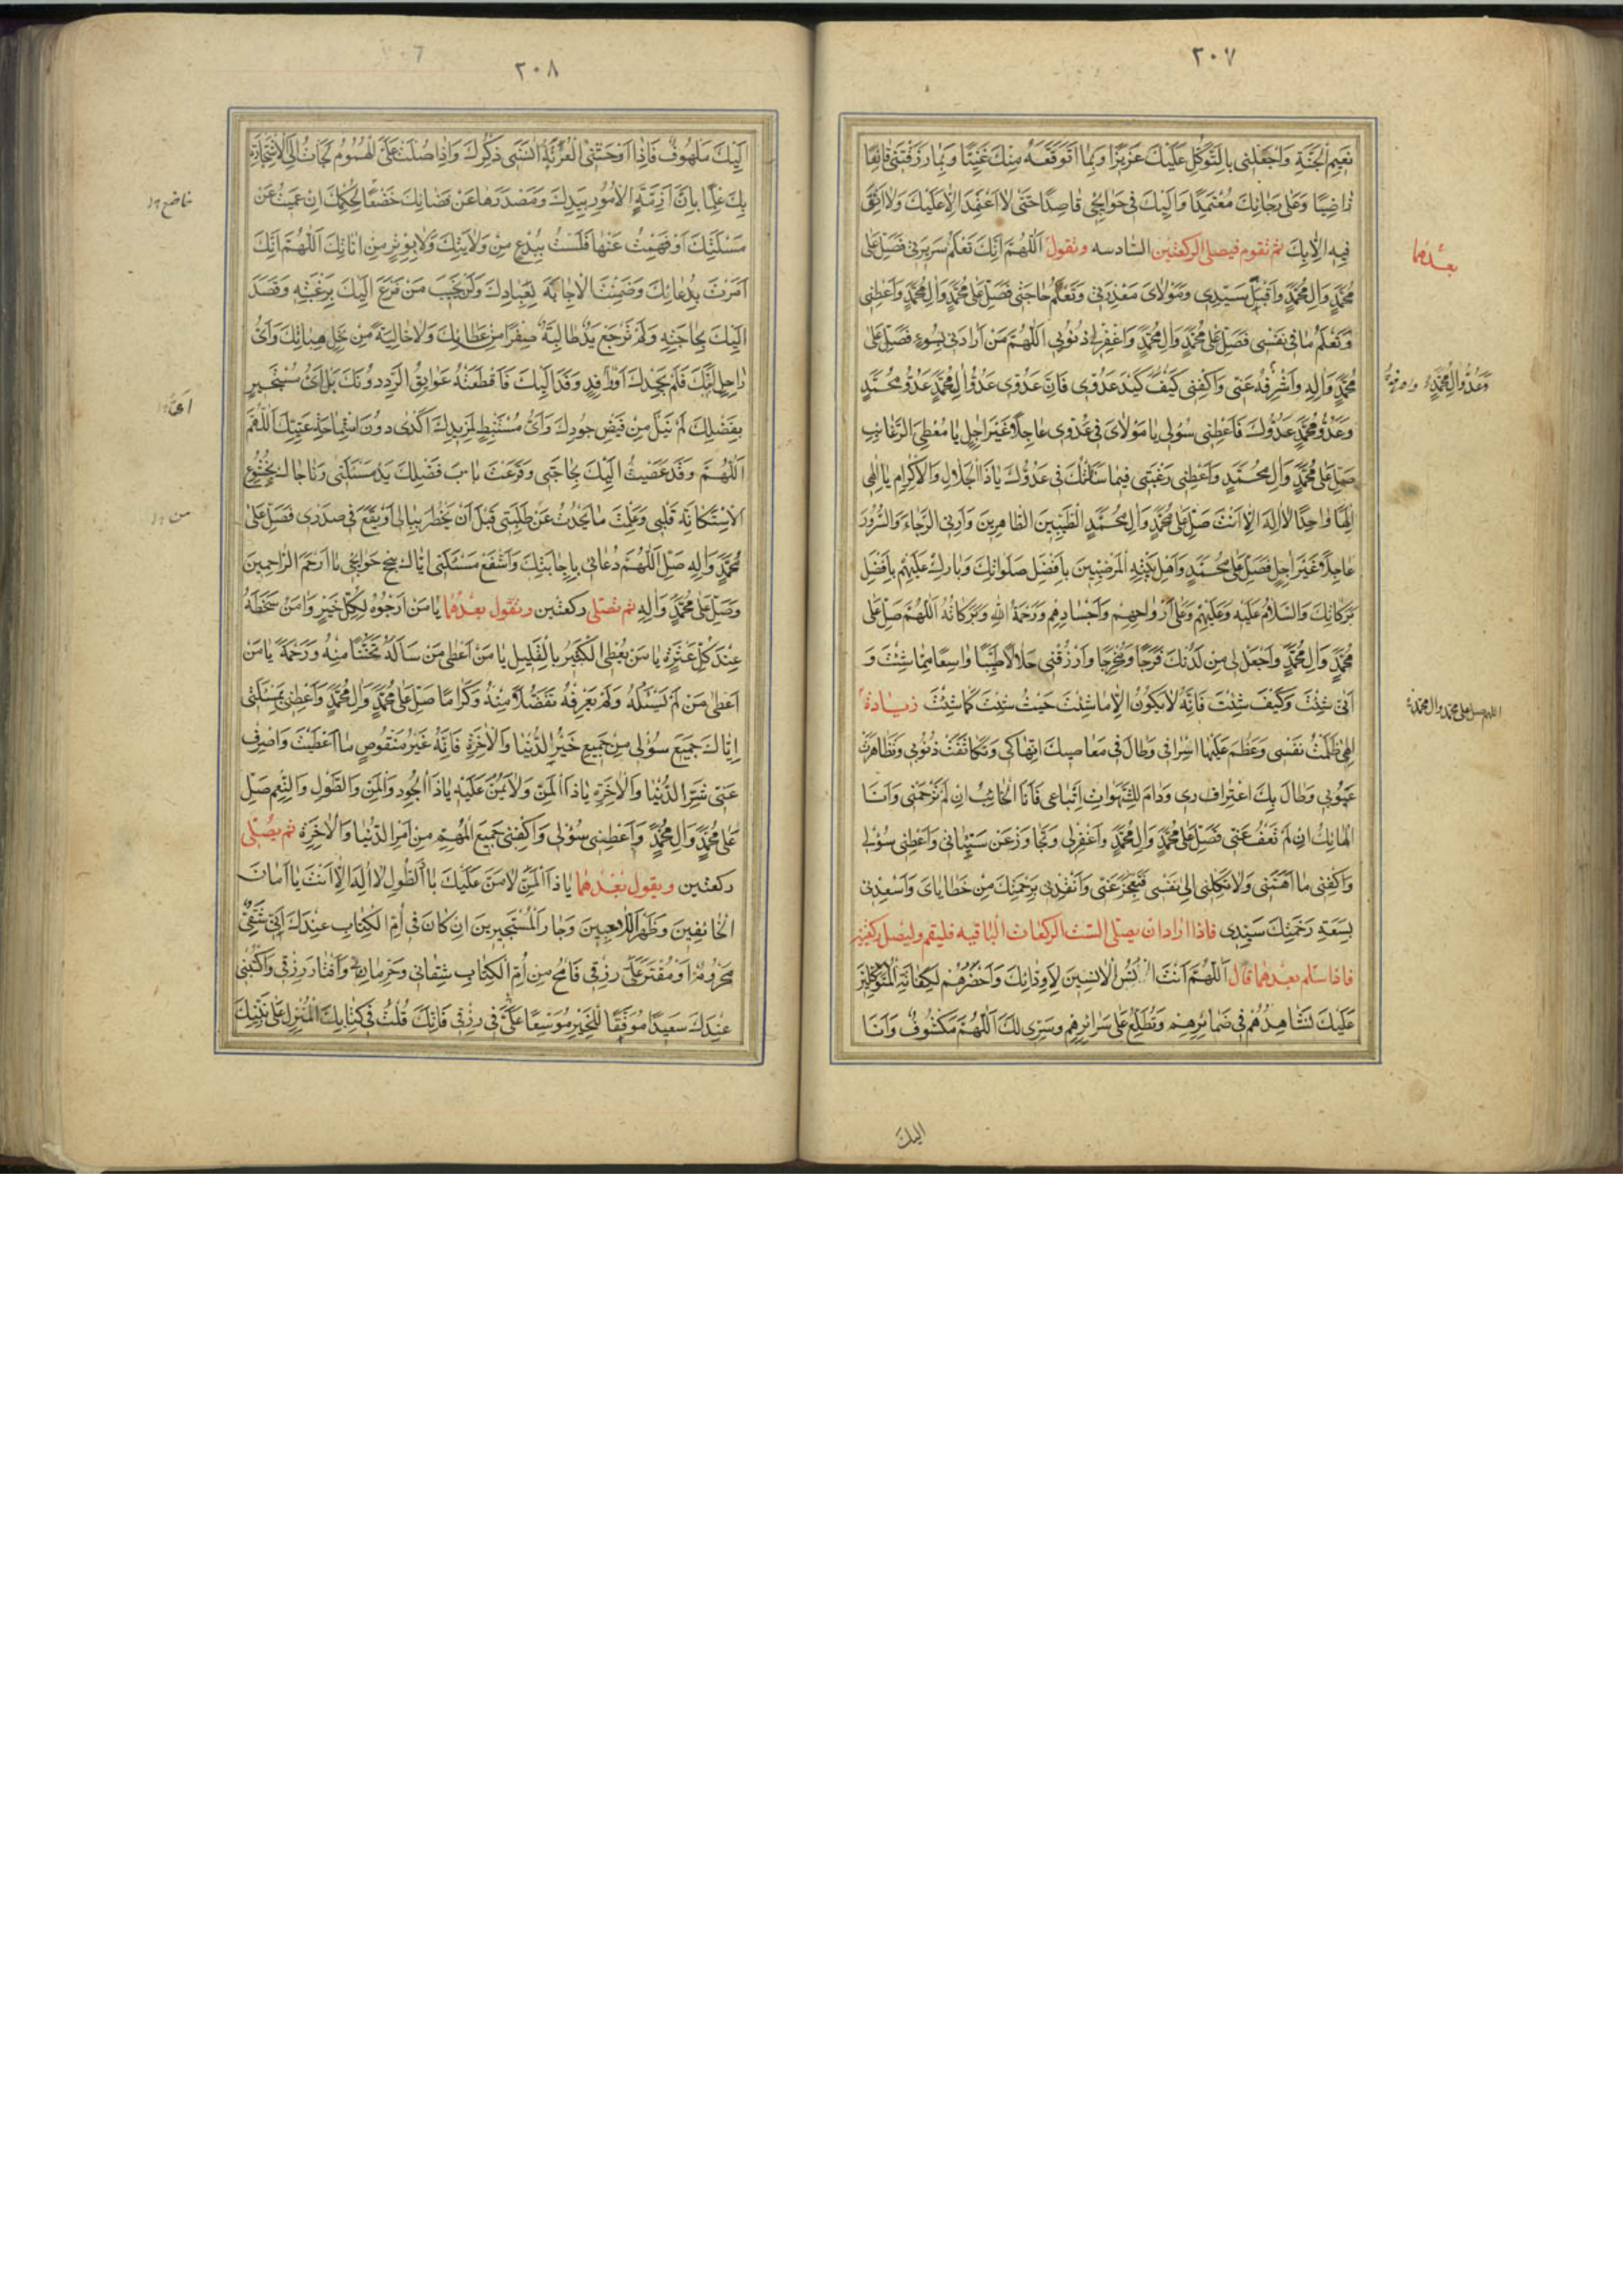 ٢٠٧
نَعِيمِ الْجَنَّةِ وَاجْعَلْنِي بِالتَّوَكُّلِ عَلَيْكَ عَزِيزًا وَبِمَا أَتَوَقَّعَهُ مِنْكَ غَنِيًّا وَبِمَا رَزَقْتَنِي قَانِعًا
رَاضِيًا وَعَلَى رَجَائِكَ مُعْتَمِدًا وَإِلَيْكَ فِي حَوَائِجِي قَاصِدًا حَتَّى لَا أَعْتَمِدَ إِلَّا عَلَيْكَ وَلَا أَثِقَ
فِيهِ إِلَّا بِكَ ثم تقوم فيصلى الركعتين السادسه وتقول اَللّٰهُمَّ إِنَّكَ تَعْلَمُ سَرِيرَتِي فَصَلِّ عَلَى
بعدهما
مُحَمَّدٍ وَآلِ مُحَمَّدٍ وَاقْبَلْ سَيِّدِي وَمَوْلَايَ مَعْذِرَتِي وَتَعْلَمُ حَاجَتِي فَصَلِّ عَلَى مُحَمَّدٍ وَآلِ مُحَمَّدٍ وَأَعْطِنِي
وَتَعْلَمُ مَا فِي نَفْسِي فَصَلِّ عَلَى مُحَمَّدٍ وَآلِ مُحَمَّدٍ وَاغْفِرْ لِي ذُنُوبِي اَللّٰهُمَّ مَنْ أَرَادَنِي بِسُوءٍ فَصَلِّ عَلَى
مُحَمَّدٍ وَآلِهِ وَاصْرِفْهُ عَنِّي وَاكْفِنِي كَيْدَ عَدُوِّي فَإِنَّ عَدُوِّي عَدُوُّ آلِ مُحَمَّدٍ عَدُوُّ مُحَمَّدٍ
وَعَدُوُّ آلِ مُحَمَّدٍ
وَعَدُوُّ مُحَمَّدٍ عَدُوُّكَ فَأَعْطِنِي سُؤْلِي يَا مَوْلَايَ فِي عَدُوِّي عَاجِلًا غَيْرَ آجِلٍ يَا مُعْطِيَ الرَّغَائِبِ
صَلِّ عَلَى مُحَمَّدٍ وَآلِ مُحَمَّدٍ وَأَعْطِنِي رَغْبَتِي فِيمَا سَأَلْتُكَ فِي عَدُوِّكَ يَا ذَا الْجَلَالِ وَالْإِكْرَامِ يَا إِلٰهِي
إِلٰهًا وَاحِدًا لَا إِلٰهَ إِلَّا أَنْتَ صَلِّ عَلَى مُحَمَّدٍ وَآلِ مُحَمَّدٍ الطَّيِّبِينَ الطَّاهِرِينَ وَأَرِنِي الرَّخَاءَ وَالسُّرُورَ
عَاجِلًا غَيْرَ آجِلٍ فَصَلِّ عَلَى مُحَمَّدٍ وَأَهْلِ بَيْتِهِ الْمَرْضِيِّينَ بِأَفْضَلِ صَلَوَاتِكَ وَبَارِكْ عَلَيْهِمْ بِأَفْضَلِ
بَرَكَاتِكَ وَالسَّلَامُ عَلَيْهِ وَعَلَيْهِمْ وَعَلَى أَرْوَاحِهِمْ وَأَجْسَادِهِمْ وَرَحْمَةُ اللّٰهِ وَبَرَكَاتُهُ اَللّٰهُمَّ صَلِّ عَلَى
مُحَمَّدٍ وَآلِ مُحَمَّدٍ وَاجْعَلْ لِي مِنْ لَدُنْكَ فَرَجًا وَمَخْرَجًا وَارْزُقْنِي حَلَالًا طَيِّبًا وَاسِعًا مِمَّا شِئْتَ وَ
أَنَّى شِئْتَ وَكَيْفَ شِئْتَ فَإِنَّهُ لَا يَكُونُ إِلَّا مَا شِئْتَ حَيْثُ شِئْتَ كَمَا شِئْتَ زيادة
اللهم صل على محمد وال محمد
إِلٰهِي ظَلَمْتُ نَفْسِي وَعَظُمَ عَلَيْهَا إِسْرَافِي وَطَالَ فِي مَعَاصِيكَ انْهِمَاكِي وَتَكَاثَفَتْ ذُنُوبِي وَتَظَاهَرَتْ
عُيُوبِي وَطَالَ بِكَ اغْتِرَارِي وَدَامَ لِلشَّهَوَاتِ اتِّبَاعِي فَأَنَا الْخَائِبُ إِنْ لَمْ تَرْحَمْنِي وَأَنَا
الْهَالِكُ إِنْ لَمْ تَعْفُ عَنِّي فَصَلِّ عَلَى مُحَمَّدٍ وَآلِ مُحَمَّدٍ وَاغْفِرْ لِي وَتَجَاوَزْ عَنْ سَيِّئَاتِي وَأَعْطِنِي سُؤْلِي
وَاكْفِنِي مَا أَهَمَّنِي وَلَا تَكِلْنِي إِلَى نَفْسِي فَتَعْجِزَ عَنِّي وَأَنْقِذْنِي بِرَحْمَتِكَ مِنْ خَطَايَايَ وَأَسْعِدْنِي
بِسَعَةِ رَحْمَتِكَ سَيِّدِي فاذا اراد ان يصلى الست الركعات الباقيه فليقم وليصل ركعتين
فاذا سلم بعدهما قال اَللّٰهُمَّ أَنْتَ آنَسُ الْآنِسِينَ لِأَوِدَّائِكَ وَأَحْضَرُهُمْ لِكِفَايَةِ الْمُتَوَكِّلِينَ
عَلَيْكَ تُشَاهِدُهُمْ فِي ضَمَائِرِهِمْ وَتَطَّلِعُ عَلَى سَرَائِرِهِمْ وَسِرِّي لَكَ اَللّٰهُمَّ مَكْشُوفٌ وَأَنَا
اليك
٢٠٨
إِلَيْكَ مَلْهُوفٌ فَإِذَا أَوْحَشَتْنِي الْغُرْبَةُ آنَسَنِي ذِكْرُكَ وَإِذَا صُلَّتْ عَلَيَّ الْهُمُومُ لَجَأْتُ إِلَى الْاِسْتِجَارَةِ
بِكَ عِلْمًا بِأَنَّ أَزِمَّةَ الْأُمُورِ بِيَدِكَ وَمَصْدَرَهَا عَنْ قَضَائِكَ خَضْعًا لِحُكْمِكَ إِنْ عَمِيتُ عَنْ
خاضع
مَسْئَلَتِكَ أَوْ فَهِهْتُ عَنْهَا فَلَسْتُ بِبِدْعٍ مِنْ وَلَايَتِكَ وَلَا بِوِتْرٍ مِنْ أَنَاتِكَ اَللّٰهُمَّ إِنَّكَ
أَمَرْتَ بِدُعَائِكَ وَضَمِنْتَ الْإِجَابَةَ لِعِبَادِكَ وَلَنْ يَخِيبَ مَنْ فَزِعَ إِلَيْكَ بِرَغْبَتِهِ وَقَصَدَ
إِلَيْكَ بِحَاجَتِهِ وَلَمْ تَرْجِعْ يَدٌ طَالِبَةٌ صِفْرًا مِنْ عَطَائِكَ وَلَا خَالِيَةً مِنْ نِحَلِ هِبَاتِكَ وَأَيُّ
رَاحِلٍ أَمَّكَ فَلَمْ يَجِدْكَ أَوْ وَافِدٍ وَفَدَ إِلَيْكَ فَاقْتَطَعَتْهُ عَوَائِقُ الرَّدِّ دُونَكَ بَلْ أَيُّ مُسْتَجِيرٍ
بِفَضْلِكَ لَمْ يَنَلْ مِنْ فَيْضِ جُودِكَ وَأَيُّ مُسْتَنْبِطٍ لِمَزِيدِكَ أَكْدَى دُونَ اسْتِمَاحَةِ
اَللّٰهُمَّ وَقَدْ قَصَدْتُ إِلَيْكَ بِحَاجَتِي وَقَرَعَتْ بَابَ فَضْلِكَ يَدُ مَسْئَلَتِي وَنَاجَاكَ بِخُشُوعِ
الْاِسْتِكَانَةِ قَلْبِي وَعَلِمْتَ مَا يَحْدُثُ عَنْ طَلِبَتِي قَبْلَ أَنْ يَخْطُرَ بِبَالِي أَوْ يَقَعَ فِي صَدْرِي فَصَلِّ عَلَى
من
مُحَمَّدٍ وَآلِهِ صِلِ اللّٰهُمَّ دُعَائِي بِإِجَابَتِكَ وَاشْفَعْ مَسْئَلَتِي إِيَّاكَ بِنُجْحِ حَوَائِجِي يَا أَرْحَمَ الرَّاحِمِينَ
وَصَلِّ عَلَى مُحَمَّدٍ وَآلِهِ ثم تصلى ركعتين وتقول بعدهما يَا مَنْ أَرْجُوهُ لِكُلِّ خَيْرٍ وَآمَنُ سَخَطَهُ
عِنْدَ كُلِّ عَثْرَةٍ يَا مَنْ يُعْطِي الْكَثِيرَ بِالْقَلِيلِ يَا مَنْ أَعْطَى مَنْ سَأَلَهُ تَحَنُّنًا مِنْهُ وَرَحْمَةً يَا مَنْ
أَعْطَى مَنْ لَمْ يَسْئَلْهُ وَلَمْ يَعْرِفْهُ تَفَضُّلًا مِنْهُ وَكَرَامًا صَلِّ عَلَى مُحَمَّدٍ وَآلِ مُحَمَّدٍ وَأَعْطِنِي بِمَسْئَلَتِي
إِيَّاكَ جَمِيعَ سُؤْلِي مِنْ جَمِيعِ خَيْرِ الدُّنْيَا وَالْآخِرَةِ فَإِنَّهُ غَيْرُ مَنْقُوصٍ مَا أَعْطَيْتَ وَاصْرِفْ
عَنِّي شَرَّ الدُّنْيَا وَالْآخِرَةِ يَا ذَا الْمَنِّ وَلَا يُمَنُّ عَلَيْهِ يَا ذَا الْجُودِ وَالْمَنِّ وَالطَّوْلِ وَالنِّعَمِ صَلِّ
عَلَى مُحَمَّدٍ وَآلِ مُحَمَّدٍ وَأَعْطِنِي سُؤْلِي وَاكْفِنِي جَمِيعَ الْمُهِمِّ مِنْ أَمْرِ الدُّنْيَا وَالْآخِرَةِ ثم يصلى
ركعتين ويقول بعدهما يَا ذَا الْمَنِّ لَا مَنَّ عَلَيْكَ يَا ذَا الطَّوْلِ لَا إِلٰهَ إِلَّا أَنْتَ يَا أَمَانَ
الْخَائِفِينَ وَظَهْرَ اللَّاجِينَ وَجَارَ الْمُسْتَجِيرِينَ إِنْ كَانَ فِي أُمِّ الْكِتَابِ عِنْدَكَ أَنِّي شَقِيٌّ
مَحْرُومٌ أَوْ مُقَتَّرٌ عَلَيَّ رِزْقِي فَامْحُ مِنْ أُمِّ الْكِتَابِ شَقَائِي وَحِرْمَانِي وَإِقْتَارَ رِزْقِي وَاكْتُبْنِي
عِنْدَكَ سَعِيدًا مُوَفَّقًا لِلْخَيْرِ مُوَسَّعًا عَلَيَّ فِي رِزْقِي فَإِنَّكَ قُلْتَ فِي كِتَابِكَ الْمُنْزَلِ عَلَى نَبِيِّكَ